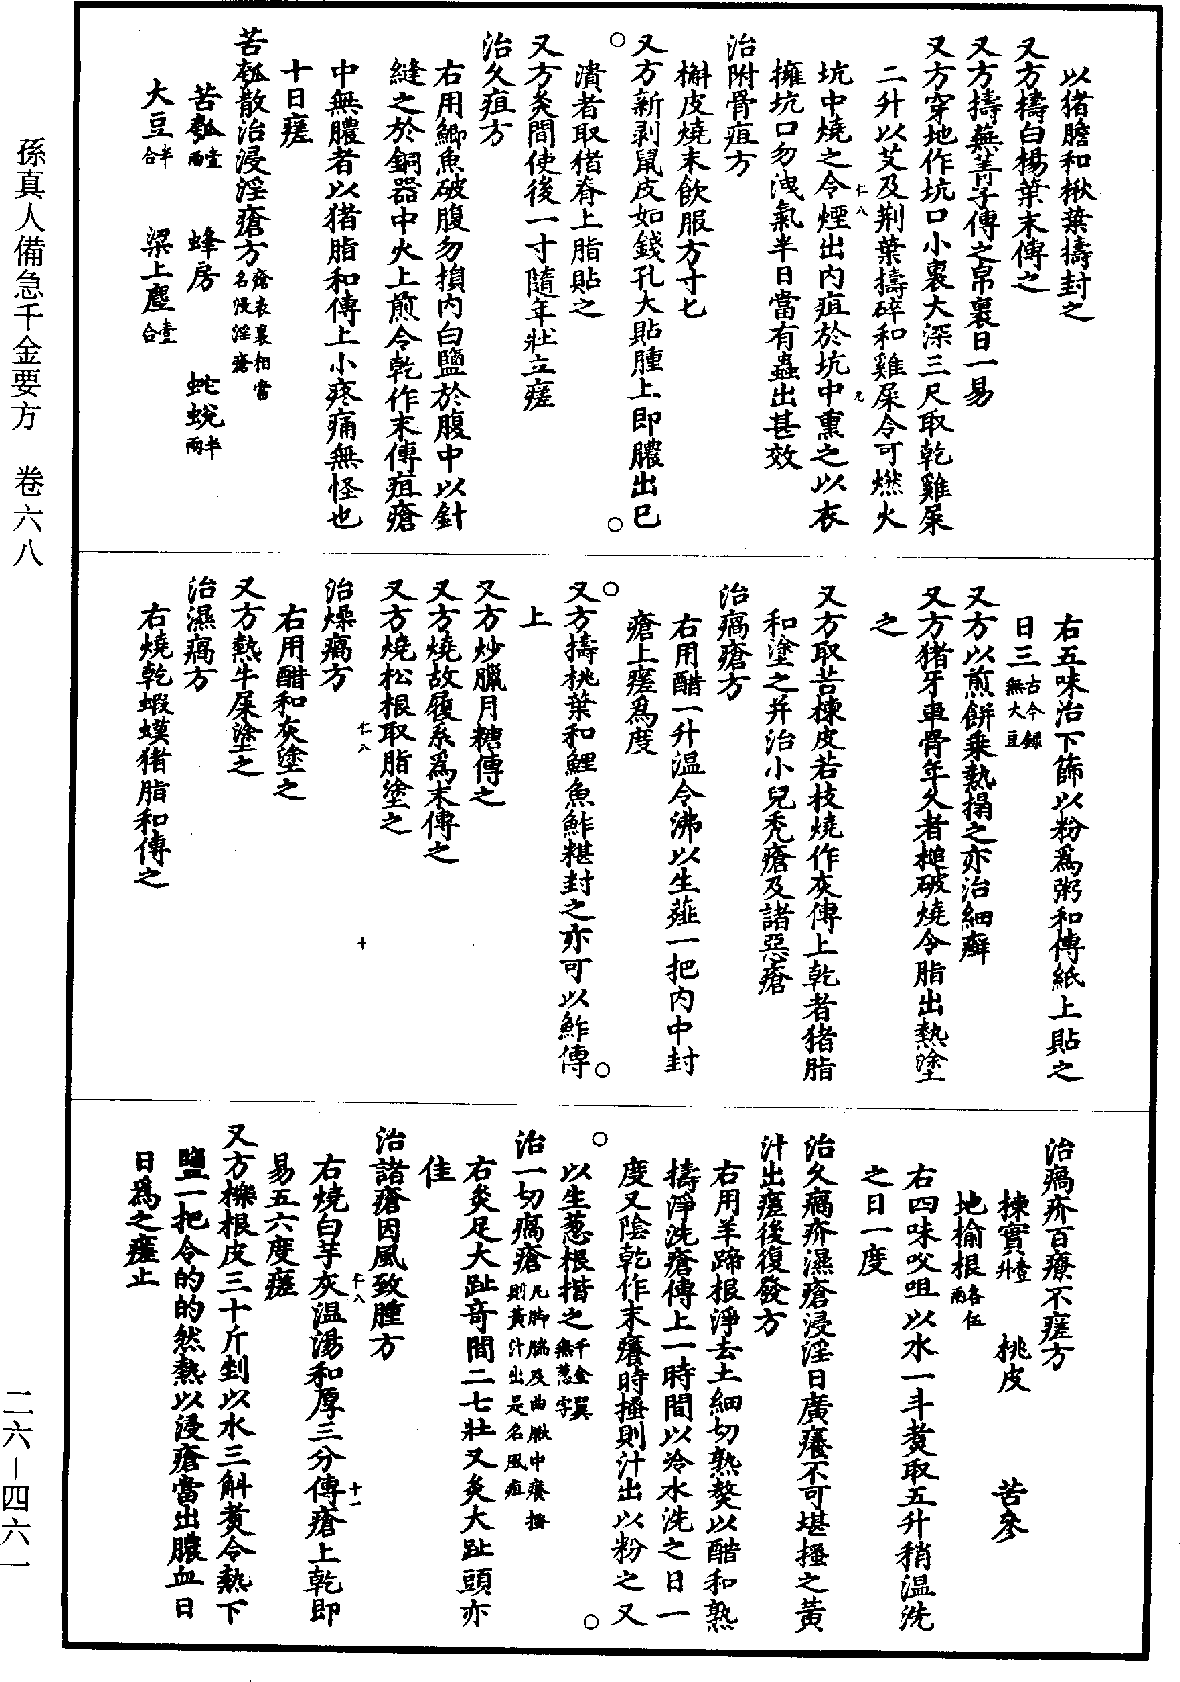 孫真人備急千金要方　卷六八
以猪膽和楸葉擣封之
又方擣白楊葉末傅之
又方擣蕪菁子傅之帛裹日一易
又方穿地作坑口小裏大深三尺取乾雞屎
二升以艾及荆葉擣碎和雞屎令可燃火
坑中燒之令煙出內疽於坑中熏之以衣
擁坑口勿洩氣半日當有蟲出甚效
仁八
九
治附骨疽方
槲皮燒末飲服方寸匕
又方新剥鼠皮如錢孔大貼腫上即膿出巳
潰者取猪脊上脂貼之
又方灸間使後一寸隨年壯立瘥
治久疽方
右用鯽魚破腹勿損內白鹽於腹中以針
縫之於銅器中火上煎令乾作末傅疽瘡
中無膿者以猪脂和傅上小疼痛無怪也
十日瘥
苦瓠散治浸淫瘡方瘡表裏相當名浸淫瘡
苦瓠壹兩　蜂房　蛇蛻半兩
大豆半合　梁上塵壹合
右五味治下篩以粉爲粥和傅紙上貼之
日三古今録無大豆
又方以煎餅乘熱搨之亦治細癬
又方猪牙車骨年久者槌破燒令脂出熱塗
之
又方取苦楝皮若枝燒作灰傅上乾者猪脂
和塗之并治小兒秃瘡及諸惡瘡
治瘑瘡方
右用醋一升温令沸以生薤一把内中封
瘡上瘥爲度
又方擣桃葉和鯉魚鮓糂封之亦可以鮓傅
上
又方炒臘月糖傅之
又方燒故履系爲末傅之
又方燒松根取脂塗之
仁八
十
治燥瘑方
右用醋和灰塗之
又方熱牛屎塗之
治濕瘑方
右燒乾蝦蟆猪脂和傅之
治瘑疥百療不瘥方
楝實壹升　桃皮　苦參
地榆根各伍兩
右四味㕮咀以水一斗煮取五升稍温洗
之日一度
治久瘑疥濕瘡浸淫日廣癢不可堪搔之黄
汁出瘥後復發方
右用羊蹄根淨去土細切熟熬以醋和熟
擣淨洗瘡傅上一時間以冷水洗之日一
度又陰乾作末癢時搔則汁出以粉之又
以生葱根揩之千金翼無葱字
治一切瘑瘡凡脚腨及曲䐐中癢搔則黄汁出是名風疽
右灸足大趾奇間二七壯又灸大趾頭亦
佳
治諸瘡因風致腫方
右燒白芋灰温湯和厚三分傅瘡上乾即
易五六度瘥
仁八
十一
又方櫟根皮三十斤剉以水三斛煮令熱下
鹽一把令的的然熱以浸瘡當出膿血日
日爲之瘥止
二六－四六一